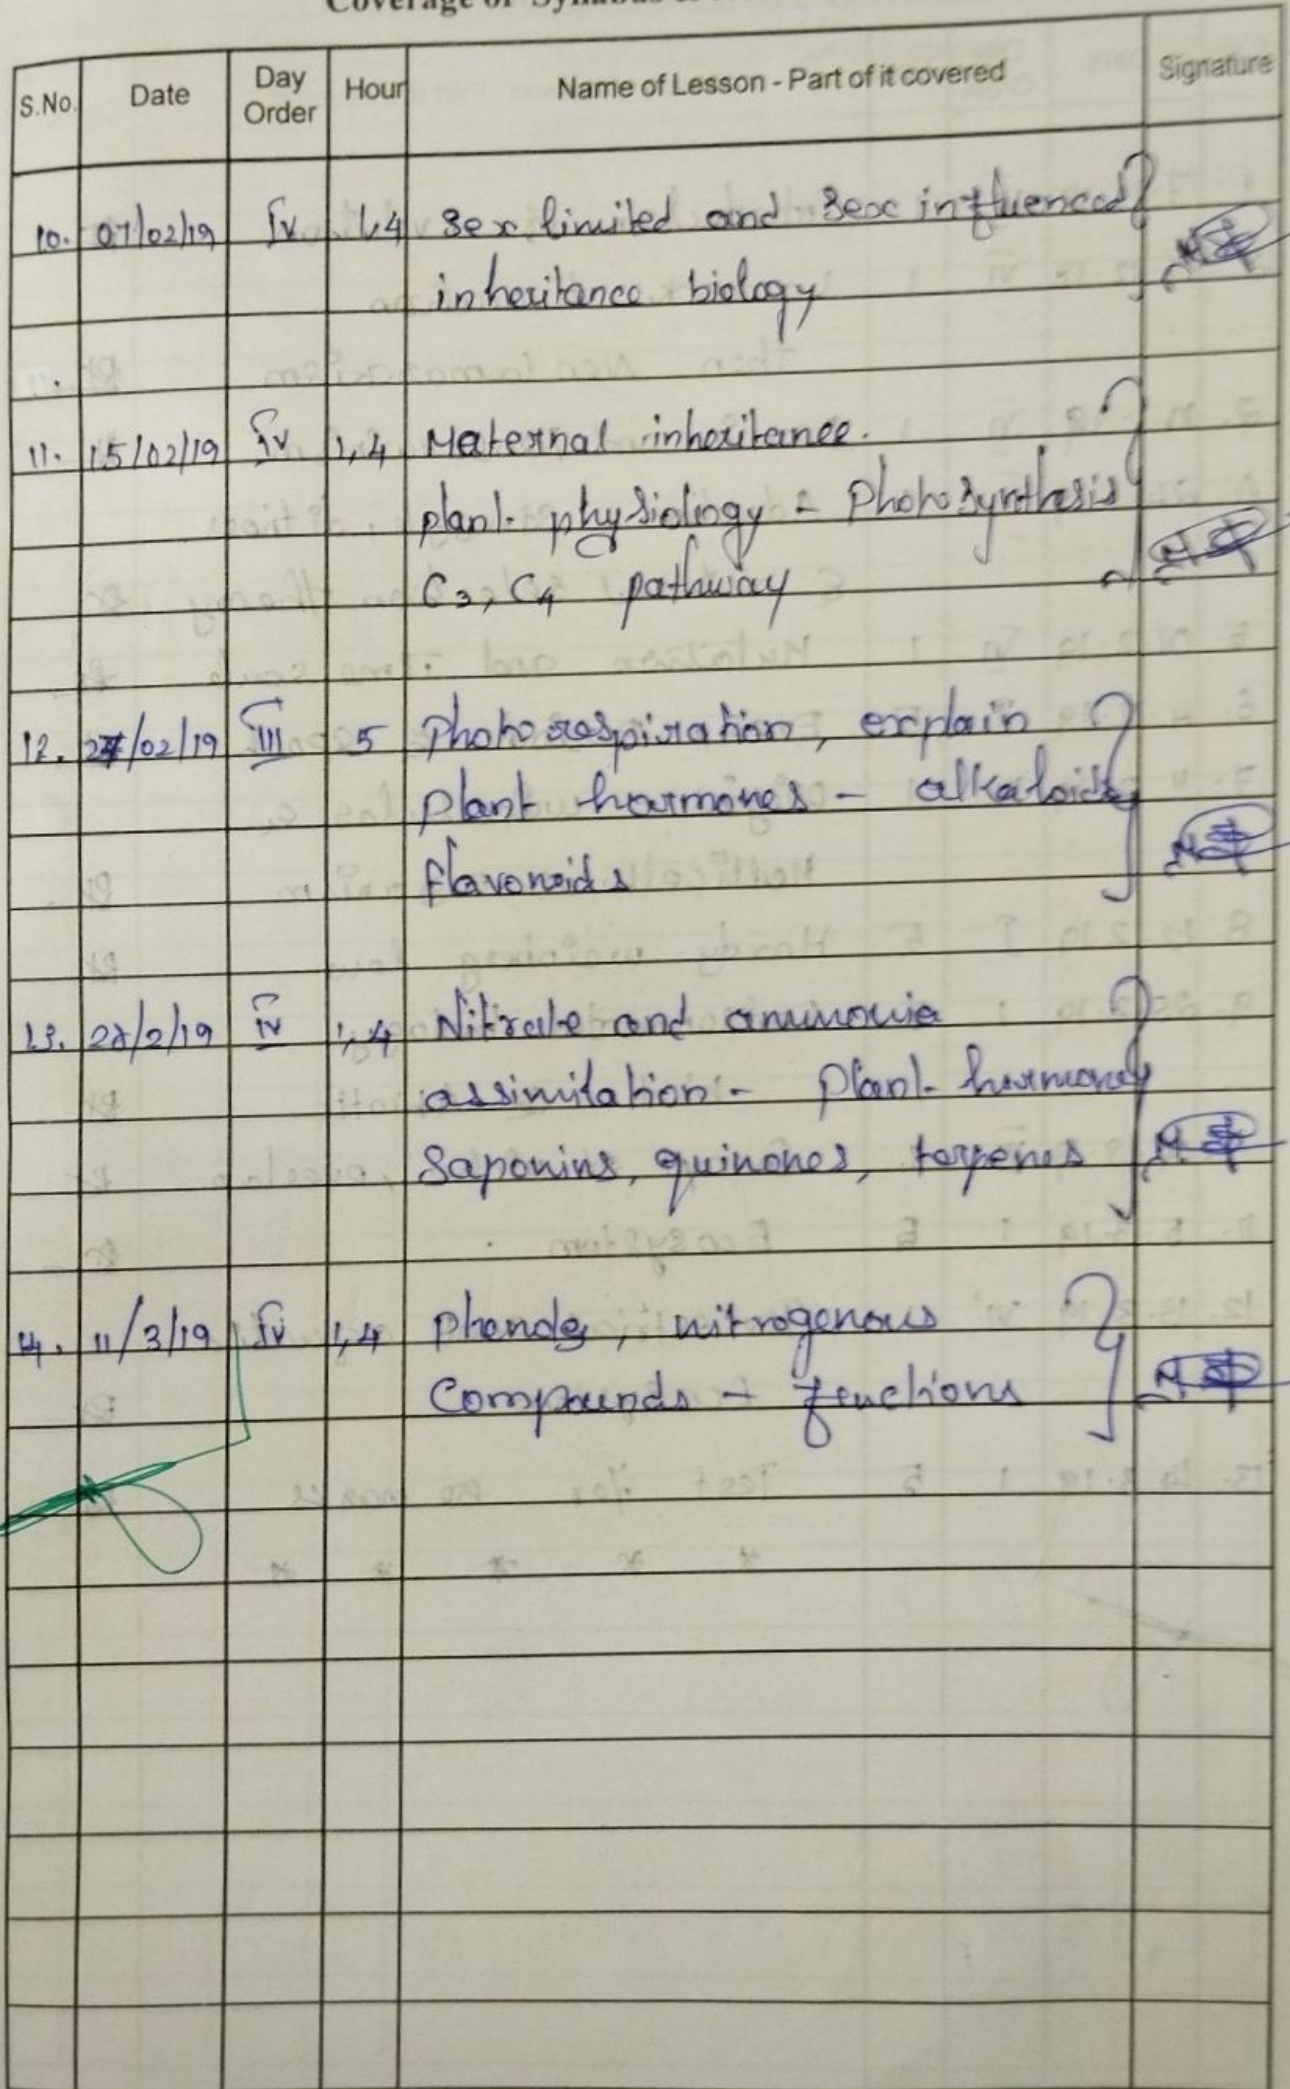 Coverage of Syllabus
S.No. Date Day Order Hour Name of Lesson - Part of it covered Signature
10. 07/02/19 IV 1,4 Sex limited and Sex influenced
inheritance biology
11. 15/02/19 IV 1,4 Maternal inheritance.
plant physiology - Photosynthesis
C3, C4 pathway
12. 27/02/19 III 5 Photorespiration, explain
Plant hormones - alkaloids
flavonoids
13. 28/2/19 IV 1,4 Nitrate and ammonia
assimilation - Plant hormones
Saponins, quinones, terpenes
14. 11/3/19 IV 1,4 phenols, nitrogenous
Compounds - functions